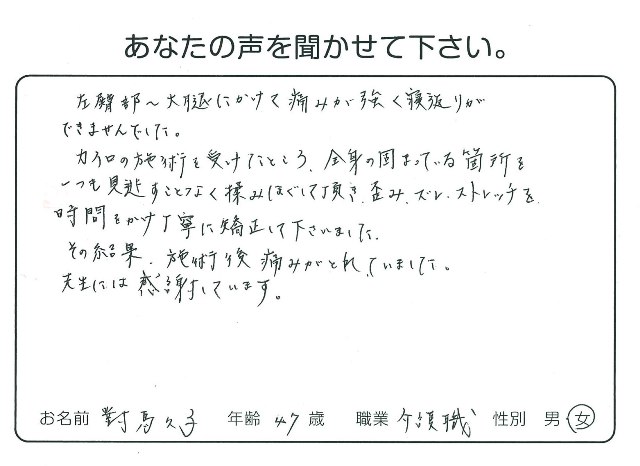 あなたの声を聞かせて下さい。
左臀部~大腿にかけて痛みが強く寝返りが
できませんでした。
カイロの施術を受けたところ、全身の固まっている箇所を
いつも見逃すことなく揉みほぐして頂き、歪み、ズレ、ストレッチを
時間をかけ丁寧に矯正して下さいました。
その結果、施術後痛みがとれていました。
先生には感謝しています。
お名前 對馬久子 年齢 47 歳 職業 介護職 性別 男 女